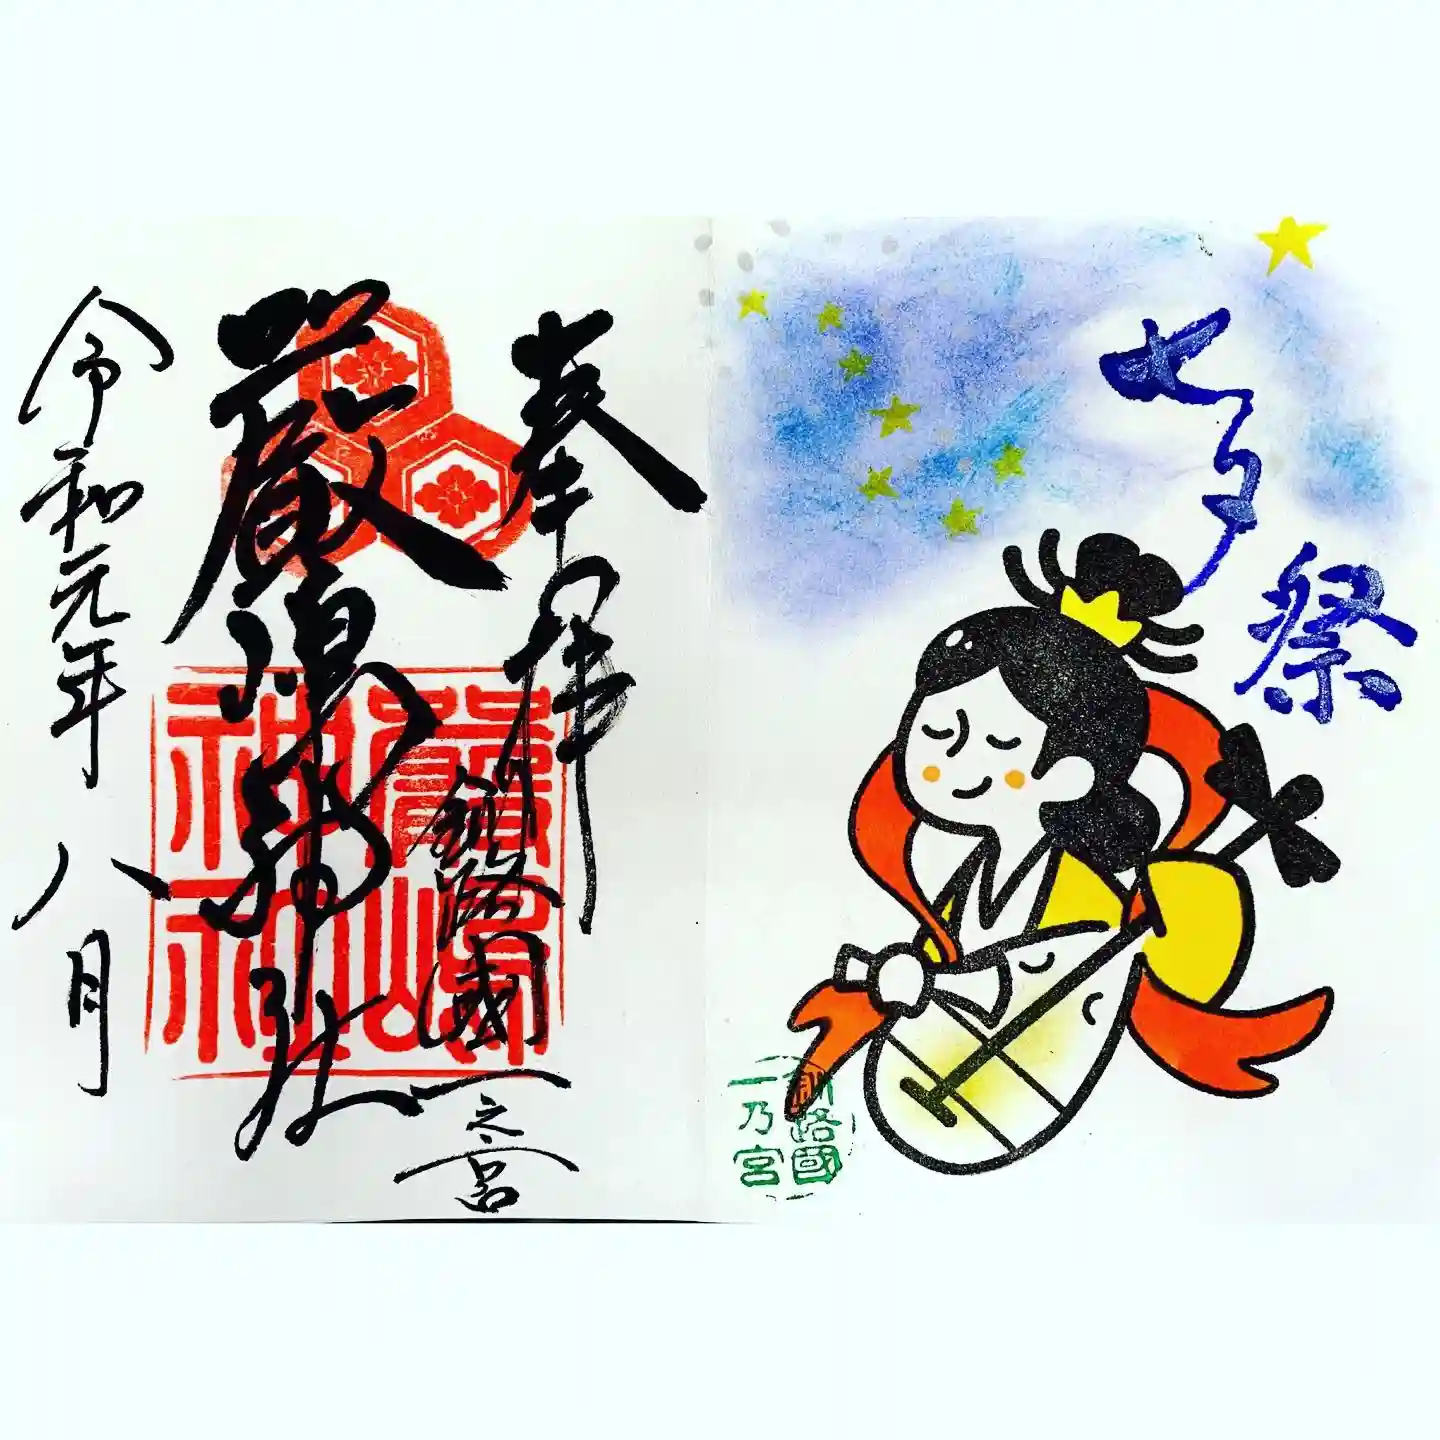 七夕
祭
奉拝
釧路國
一之宮
厳島神社
令和元年
八月
嚴嶋
神社
釧路國
一乃宮